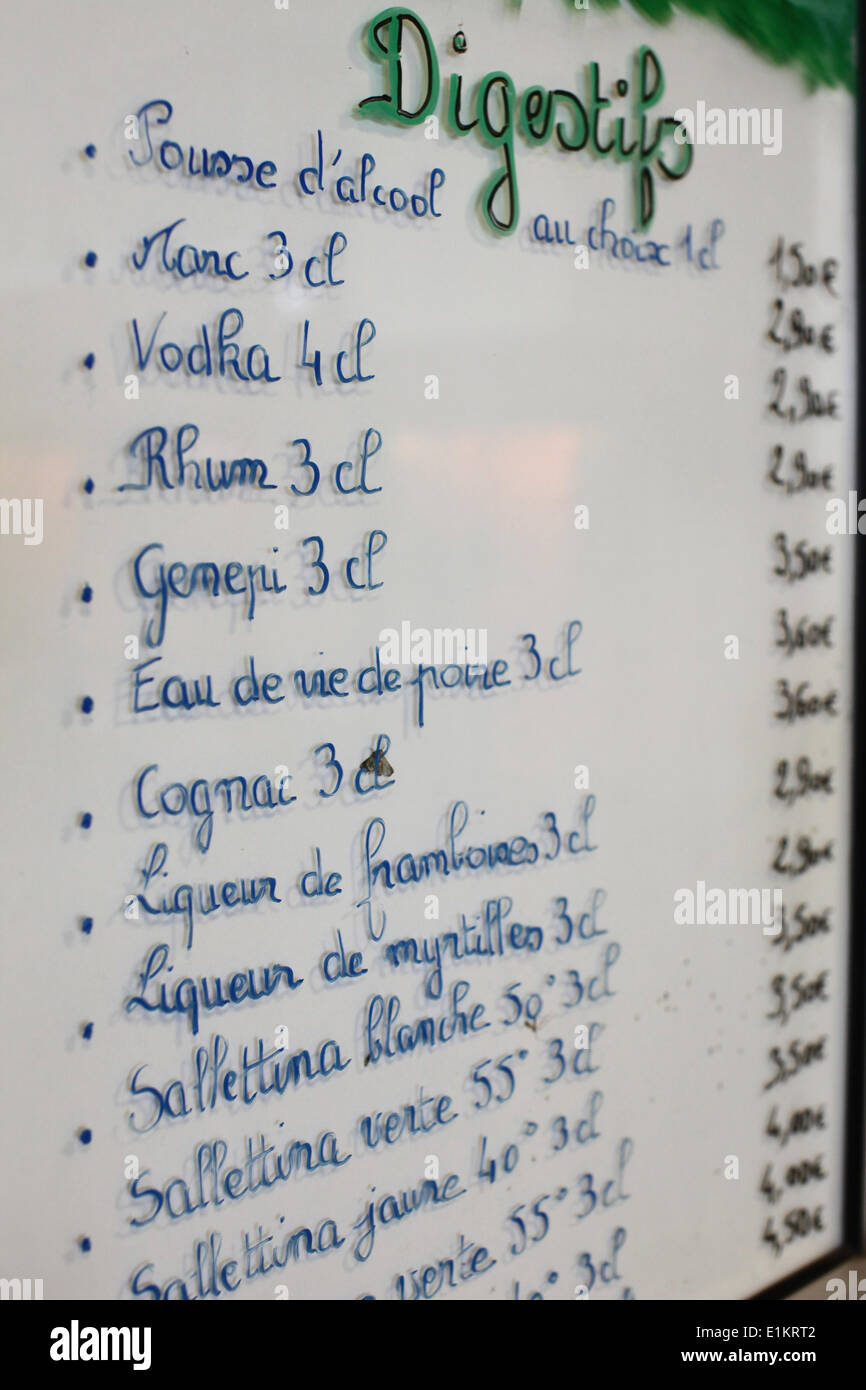 Digestifs
• Pousse d'alcool au choix 1 cl 1,50€
• Marc 3 cl 2,90€
• Vodka 4 cl 2,90€
• Rhum 3 cl 2,90€
• Genepi 3 cl 3,50€
• Eau de vie de poire 3 cl 3,60€
• Cognac 3 cl 3,60€
• Liqueur de framboises 3 cl 2,90€
• Liqueur de myrtilles 3 cl 2,90€
• Sallettina blanche 50° 3 cl 3,50€
• Sallettina verte 55° 3 cl 3,50€
Sallettina jaune 40° 3 cl 3,50€
verte 55° 3 cl 4,00€
3 cl 4,00€
4,50€
alamy
E1KRT2
www.alamy.com